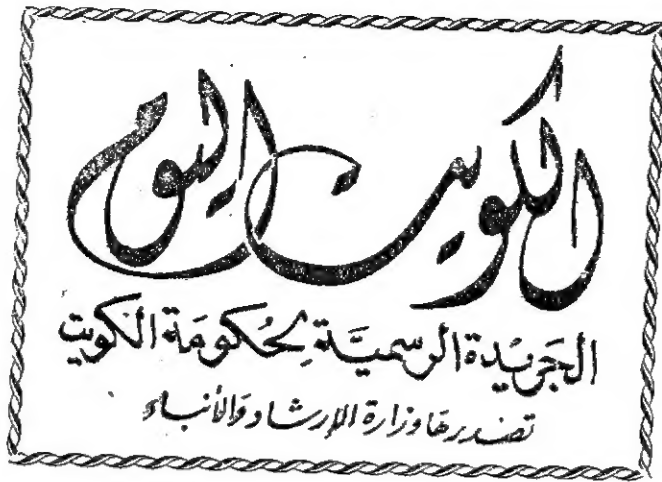 الكويت اليوم
الجَريدة الرسميَّة لِحُكومَة الكويت
تصدرهَا وزارة الإرشاد وَالأنباء